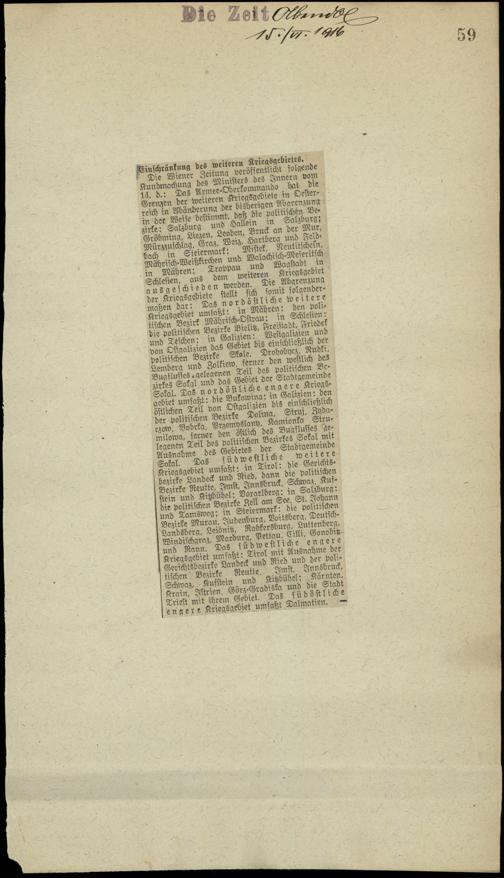 Die Zeit Abendbl.
15./VI. 1916
59
Einschränkung des weiteren Kriegsgebietes.
Die Wiener Zeitung veröffentlicht folgende
Kundmachung des Ministers des Innern vom
14. d.: Das Armee-Oberkommando hat die
Grenzen der weiteren Kriegsgebiete in Oester-
reich in Abänderung der bisherigen Abgrenzung
in der Weise bestimmt, daß die politischen Be-
zirke: Salzburg und Hallein in Salzburg;
Gröbming, Liezen, Leoben, Bruck an der Mur,
Mürzzuschlag, Graz, Weiz, Hartberg und Feld-
bach in Steiermark; Mistek, Neutitschein,
Mährisch-Weißkirchen und Walachisch-Meseritsch
in Mähren; Troppau und Wagstadt in
Schlesien, aus dem weiteren Kriegsgebiet
ausgeschieden werden. Die Abgrenzung
der Kriegsgebiete stellt sich somit folgender-
maßen dar: Das nordöstliche weitere
Kriegsgebiet umfaßt: in Mähren: den poli-
tischen Bezirk Mährisch-Ostrau; in Schlesien:
die politischen Bezirke Bielitz, Freistadt, Friedek
und Teschen; in Galizien: Westgalizien und
von Ostgalizien das Gebiet bis einschließlich der
politischen Bezirke Skole, Drohobycz, Rudki,
Lemberg und Zolkiew, ferner den westlich des
Bugflusses gelegenen Teil des politischen Be-
zirkes Sokal und das Gebiet der Stadtgemeinde
Sokal. Das nordöstliche engere Kriegs-
gebiet umfaßt: die Bukowina; in Galizien: den
östlichen Teil von Ostgalizien bis einschließlich
der politischen Bezirke Dolina, Stryj, Zyda-
czow, Bobrka, Przemyslany, Kamionka Stru-
milowa, ferner den östlich des Bugflusses ge-
legenen Teil des politischen Bezirkes Sokal mit
Ausnahme des Gebietes der Stadtgemeinde
Sokal. Das südwestliche weitere
Kriegsgebiet umfaßt: in Tirol: die Gerichts-
bezirke Landeck und Ried, dann die politischen
Bezirke Reutte, Imst, Innsbruck, Schwaz, Kuf-
stein und Kitzbühel; Vorarlberg; in Salzburg:
die politischen Bezirke Zell am See, St. Johann
und Tamsweg; in Steiermark: die politischen
Bezirke Murau, Judenburg, Voitsberg, Deutsch-
Landsberg, Leibnitz, Radkersburg, Luttenberg,
Windischgraz, Marburg, Pettau, Cilli, Gonobitz
und Rann. Das südwestliche engere
Kriegsgebiet umfaßt: Tirol mit Ausnahme der
Gerichtsbezirke Landeck und Ried und der poli-
tischen Bezirke Reutte, Imst, Innsbruck,
Schwaz, Kufstein und Kitzbühel; Kärnten,
Krain, Istrien, Görz-Gradiska und die Stadt
Triest mit ihrem Gebiet. Das südöstliche
engere Kriegsgebiet umfaßt Dalmatien.